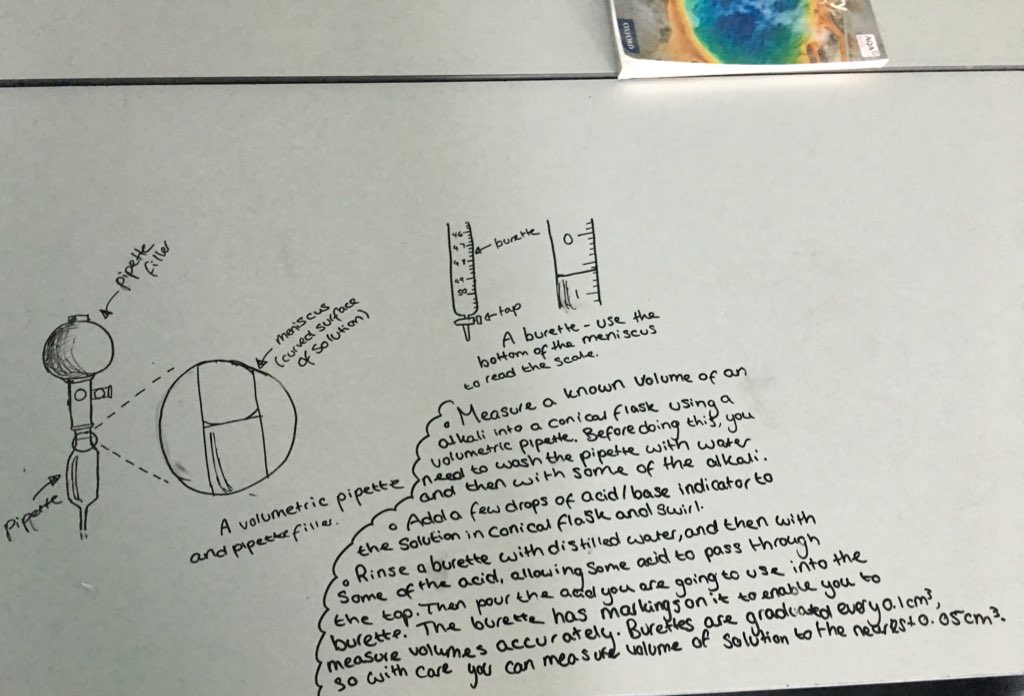 OXFORD
AQA
pipette
filler
meniscus
(curved surface
of solution)
pipette
A volumetric pipette
and pipette filler.
46
47
48
49
50
burette
tap
0
1
A burette - use the
bottom of the meniscus
to read the scale.
• Measure a known volume of an
alkali into a conical flask using a
volumetric pipette. Before doing this, you
need to wash the pipette with water
and then with some of the alkali.
• Add a few drops of acid/base indicator to
the solution in conical flask and swirl.
• Rinse a burette with distilled water, and then with
some of the acid, allowing some acid to pass through
the tap. Then pour the acid you are going to use into the
burette. The burette has markings on it to enable you to
measure volumes accurately. Burettes are graduated every 0.1cm³,
so with care you can measure volume of solution to the nearest 0.05cm³.